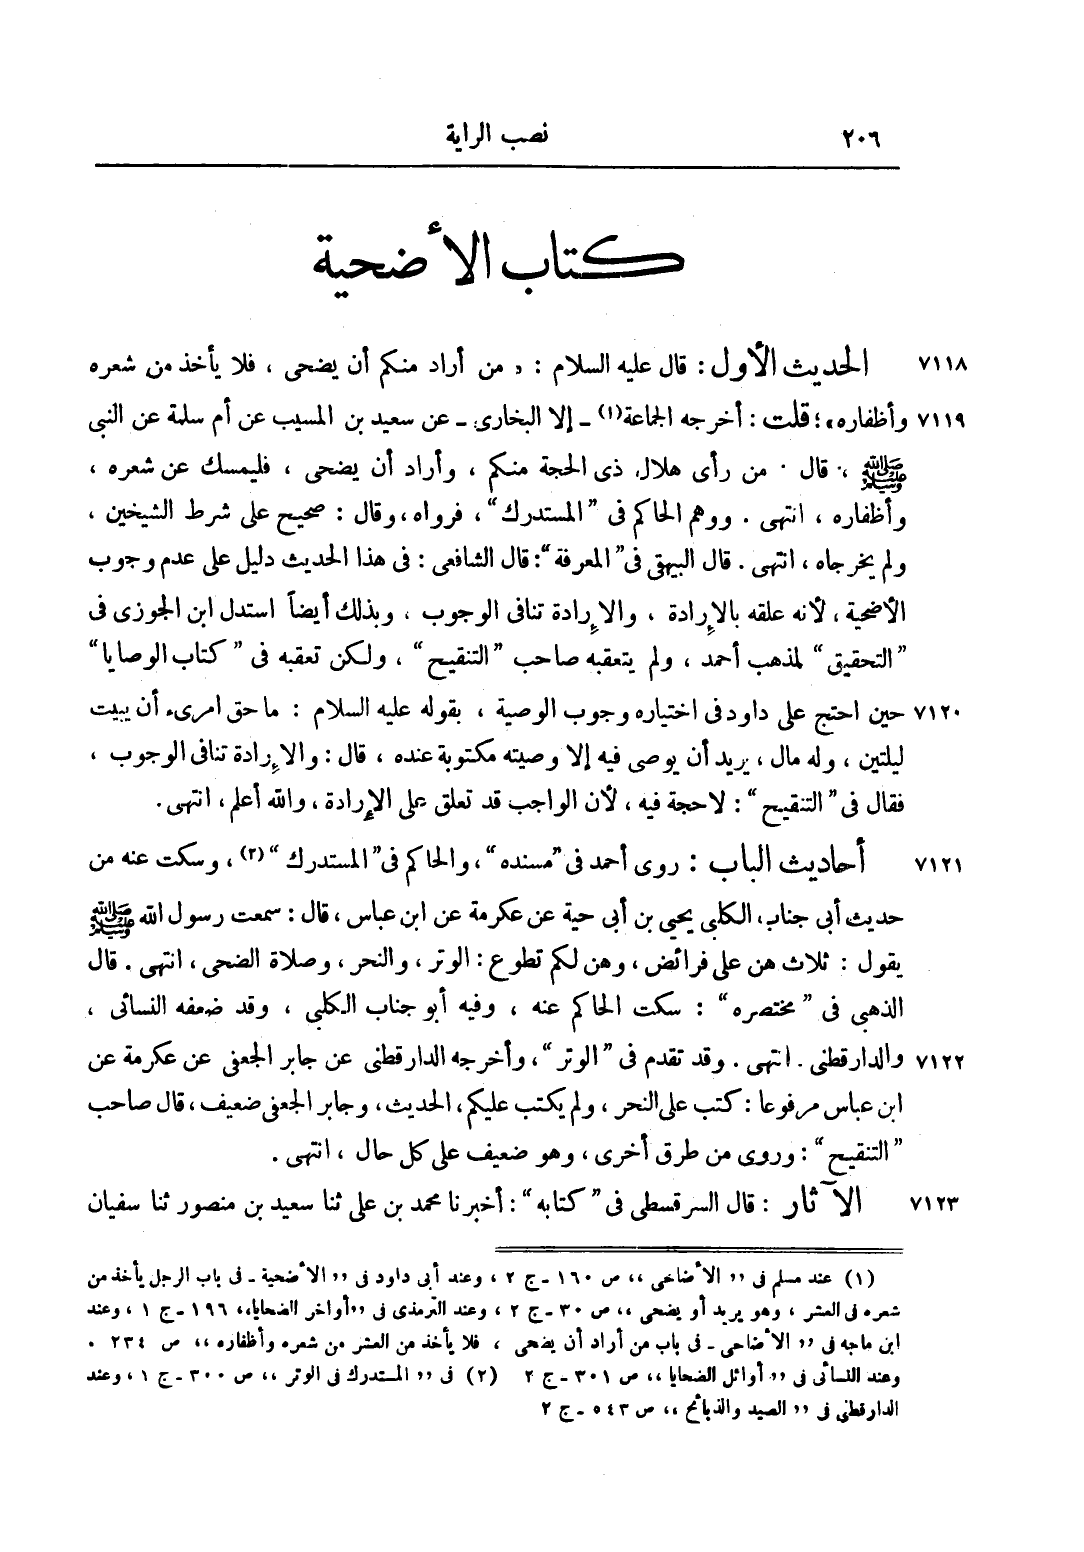 ٢٠٦ نصب الراية
كتاب الأضحية
٧١١٨ الحديث الأول: قال عليه السلام: «من أراد منكم أن يضحى، فلا يأخذ من شعره
٧١١٩ وأظفاره»؛ قلت: أخرجه الجماعة(١) ـ إلا البخارى ـ عن سعيد بن المسيب عن أم سلمة عن النبى
ﷺ، قال: من رأى هلال ذى الحجة منكم، وأراد أن يضحى، فليمسك عن شعره،
وأظفاره، انتهى. ووهم الحاكم فى "المستدرك"، فرواه، وقال: صحيح على شرط الشيخين،
ولم يخرجاه، انتهى. قال البيهقى فى "المعرفة": قال الشافعى: فى هذا الحديث دليل على عدم وجوب
الأضحية، لأنه علقه بالإرادة، والإرادة تنافى الوجوب، وبذلك أيضاً استدل ابن الجوزى فى
"التحقيق" لمذهب أحمد، ولم يتعقبه صاحب "التنقيح"، ولكن تعقبه فى "كتاب الوصايا"
٧١٢٠ حين احتج على داود فى اختياره وجوب الوصية، بقوله عليه السلام: ما حق امرىء أن يبيت
ليلتين، وله مال، يريد أن يوصى فيه إلا وصيته مكتوبة عنده، قال: والإرادة تنافى الوجوب،
فقال فى "التنقيح": لا حجة فيه، لأن الواجب قد تعلق على الإرادة، والله أعلم، انتهى.
٧١٢١ أحاديث الباب: روى أحمد فى "مسنده"، والحاكم فى "المستدرك"(٢)، وسكت عنه من
حديث أبى جناب، الكلبى يحيى بن أبى حية عن عكرمة عن ابن عباس، قال: سمعت رسول الله ﷺ
يقول: ثلاث هن على فرائض، وهن لكم تطوع: الوتر، والنحر، وصلاة الضحى، انتهى. قال
الذهبى فى "مختصره": سكت الحاكم عنه، وفيه أبو جناب الكلبى، وقد ضعفه النسائى،
٧١٢٢ والدارقطنى. انتهى. وقد تقدم فى "الوتر"، وأخرجه الدارقطنى عن جابر الجعفى عن عكرمة عن
ابن عباس مرفوعا: كتب على النحر، ولم يكتب عليكم، الحديث، وجابر الجعفى ضعيف، قال صاحب
"التنقيح": وروى من طرق أخرى، وهو ضعيف على كل حال، انتهى.
٧١٢٣ الآثار: قال السرقسطى فى "كتابه": أخبرنا محمد بن على ثنا سعيد بن منصور ثنا سفيان
(١) عند مسلم فى ,, الأضاحى ،، ص ١٦٠ ـ ج ٢، وعند أبى داود فى ,, الأضحية ـ فى باب الرجل يأخذ من
شعره فى العشر، وهو يريد أو يضحى ،، ص ٣٠ ـ ج ٢، وعند الترمذى فى ,,أواخر الضحايا،، ١٩٦ ـ ج ١، وعند
ابن ماجه فى ,, الأضاحى ـ فى باب من أراد أن يضحى، فلا يأخذ من العشر من شعره وأظفاره ،، ص ٢٣٤.
وعند النسائى فى ,, أوائل الضحايا ،، ص ٣٠١ ـ ج ٢ (٢) فى ,, المستدرك فى الوتر ،، ص ٣٠٠ ـ ج ١، وعند
الدارقطنى فى ,, الصيد والذبائح ،، ص ٥٤٣ ـ ج ٢